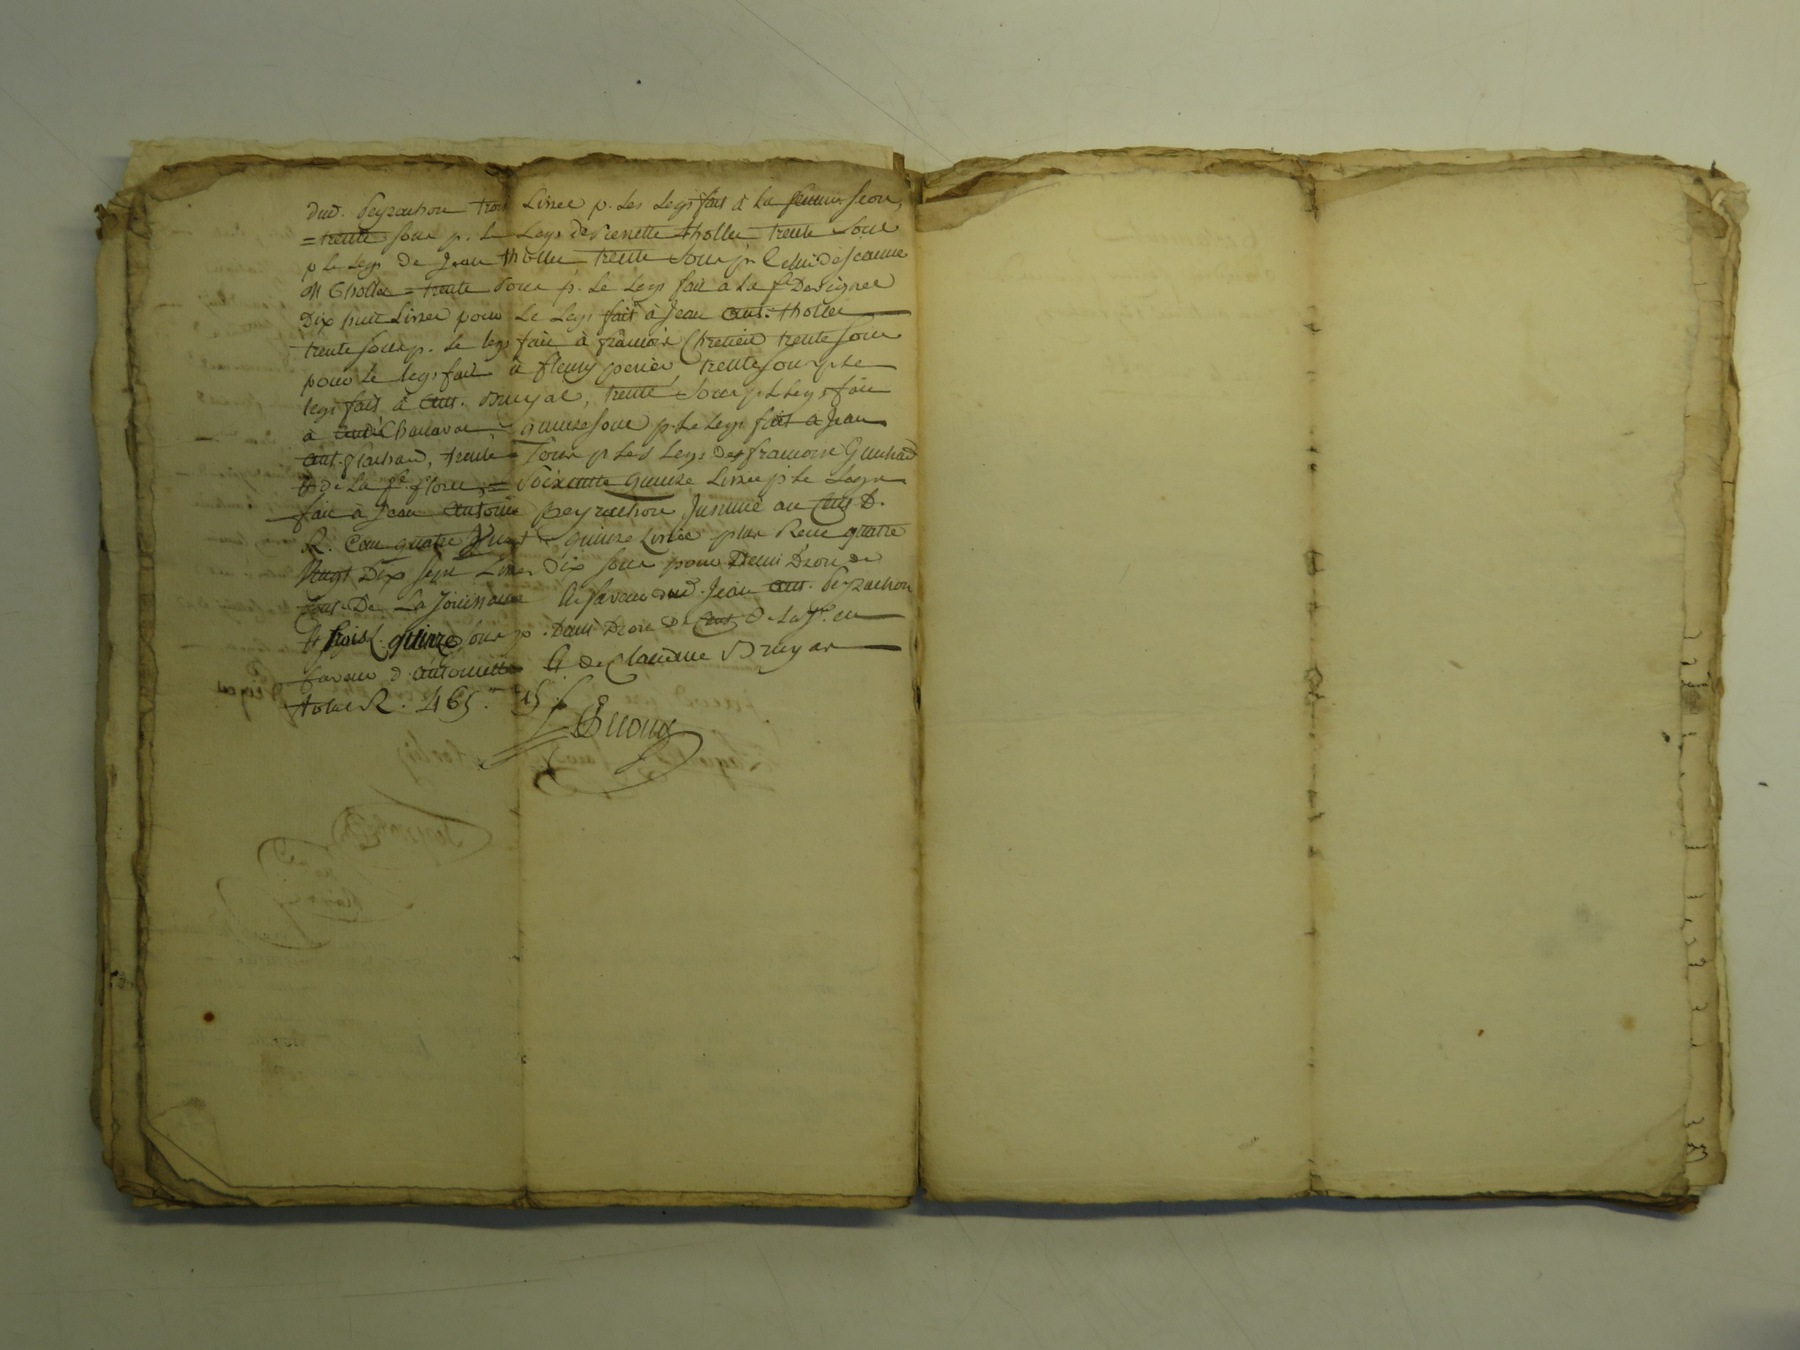 dud. Peyrachon trois Livres p. les legs fait à la femme Seon,
= trente sous p. le Legs de Pierrette tholler trente sous
p le legs de Jean tholler trente sous pr. Celui de Jeanne
M tholler = trente sous p. le legs fait a la fe Devignes
Dix huit Livres pour Le Legs fait à Jean ant. tholler
trente sous p. le legs fait à françois Chretien trente sous
pour le legs fait à fleury perier trente sous p le
legs fait à ant. Bruyas, trente sous p Legs fait
à Chanavat, quinze sous p. Le Legs fait a Jean
ant. flachard, trente sous p Le Legs de francoise Guichard
de la fe flory = Soixante quinze Livres p le Legs
fait à Jean Antoine peyrachon Insinué au Cent D.
R. Cent quatre Vingt quinze Livres plus Receu quatre
Vingt Dix Sept Livres Dix sous pour Demi Droit de
Cent. De La Jouissance en faveur dud. Jean ant. Peyrachon
& trois L. quinze sous p. Demi Droit de Cent de la Jce. en
faveur d'antoinette & de Claudine Bruyas
total R. 465.# 15 s.
Guoux